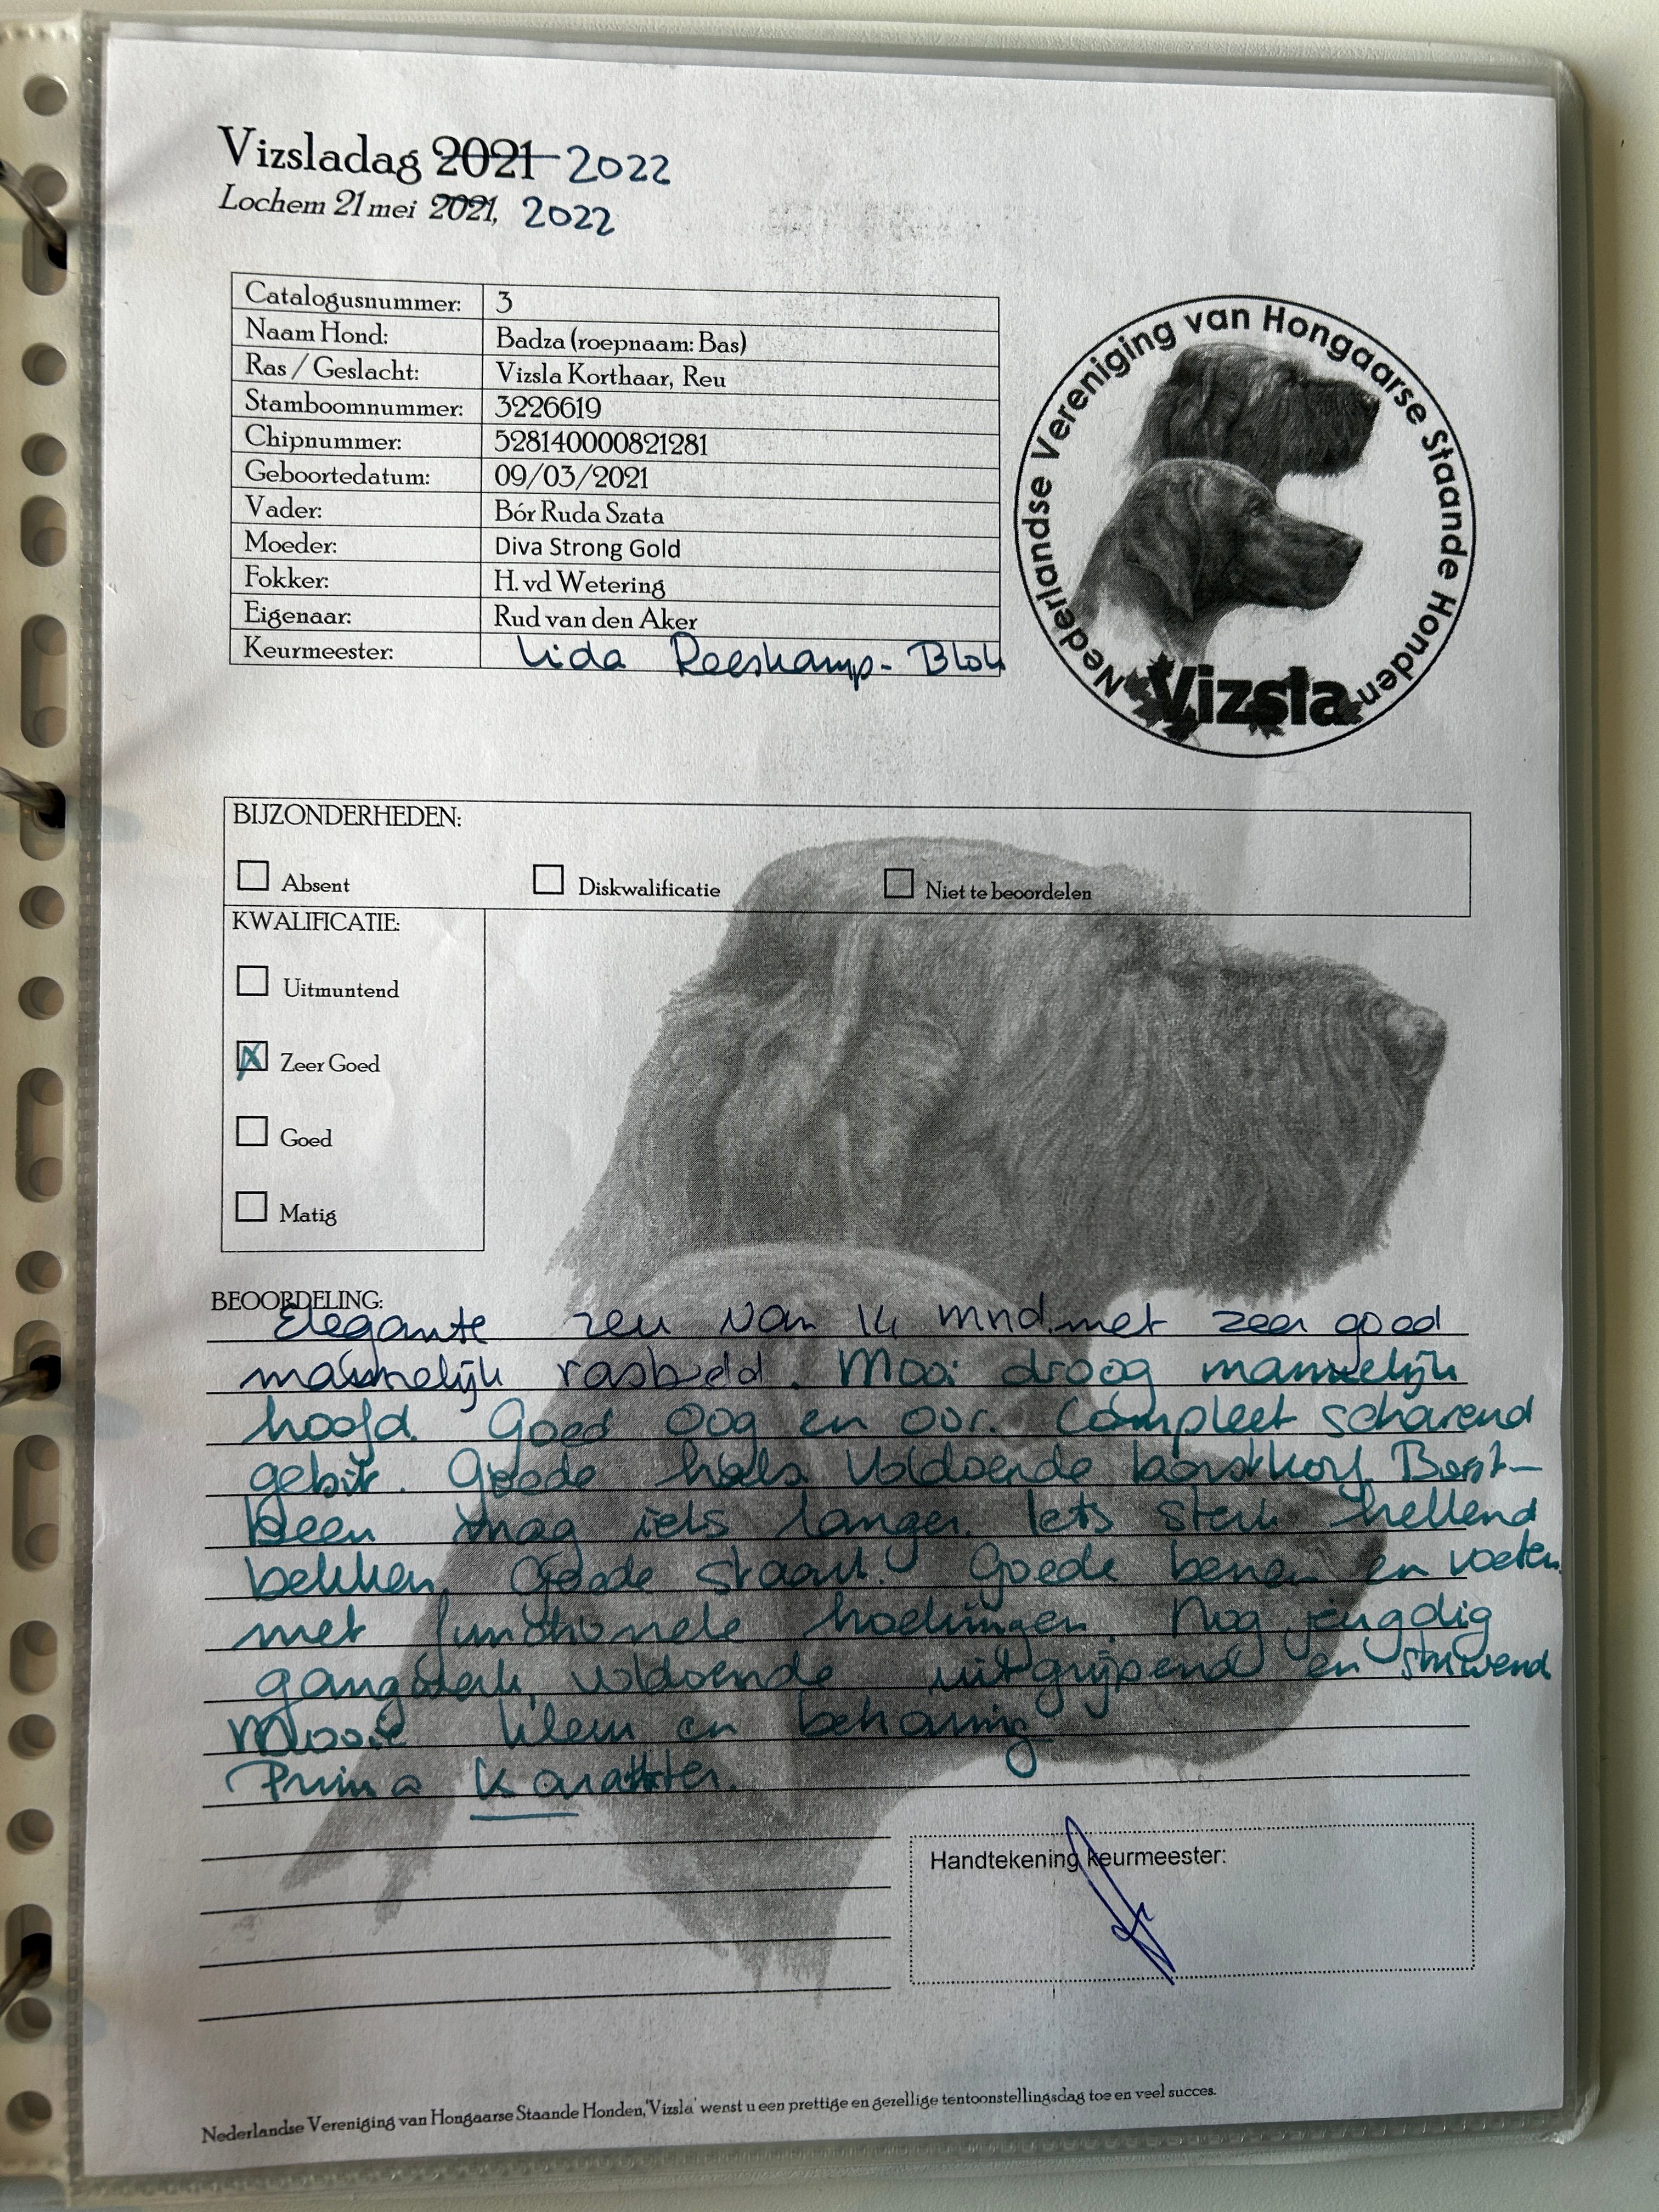 Vizsladag 2021 2022
Lochem 21 mei 2021, 2022
Catalogusnummer: 3
Naam Hond: Badza (roepnaam: Bas)
Ras / Geslacht: Vizsla Korthaar, Reu
Stamboomnummer: 3226619
Chipnummer: 528140000821281
Geboortedatum: 09/03/2021
Vader: Bór Ruda Szata
Moeder: Diva Strong Gold
Fokker: H. vd Wetering
Eigenaar: Rud van den Aker
Keurmeester: Lida Reeskamp-Blok
Nederlandse Vereniging van Hongaarse Staande Honden
Vizsla
BIJZONDERHEDEN:
Absent Diskwalificatie Niet te beoordelen
KWALIFICATIE:
Uitmuntend
X Zeer Goed
Goed
Matig
BEOORDELING:
Elegante reu van 14 mnd. met zeer goed
mannelijk rasbeeld. Mooi droog mannelijk
hoofd. Goed oog en oor. Compleet scharend
gebit. Goede hals. Voldoende borstkorf. Borst-
been mag iets langer. Iets sterk hellend
bekken. Goede staart. Goede benen en voeten
met functionele hoekingen. Nog jeugdig
gangwerk, voldoende uitgrijpend en stuwend
Mooie kleur en beharing
Prima karakter.
Handtekening keurmeester:
Nederlandse Vereniging van Hongaarse Staande Honden,'Vizsla' wenst u een prettige en gezellige tentoonstellingsdag toe en veel succes.